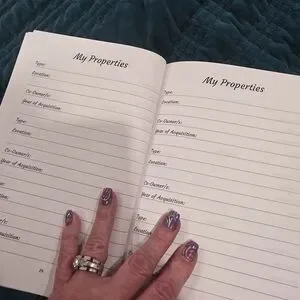 My Properties
Type:
Location:
Co-Owner/s:
Year of Acquisition:
Type:
Location:
Co-Owner/s:
Year of Acquisition:
Type:
Location:
My Properties
Type:
Location:
Co-Owner/s:
Year of Acquisition:
Type:
Location:
Co-Owner/s:
Year of Acquisition:
Type:
Location: